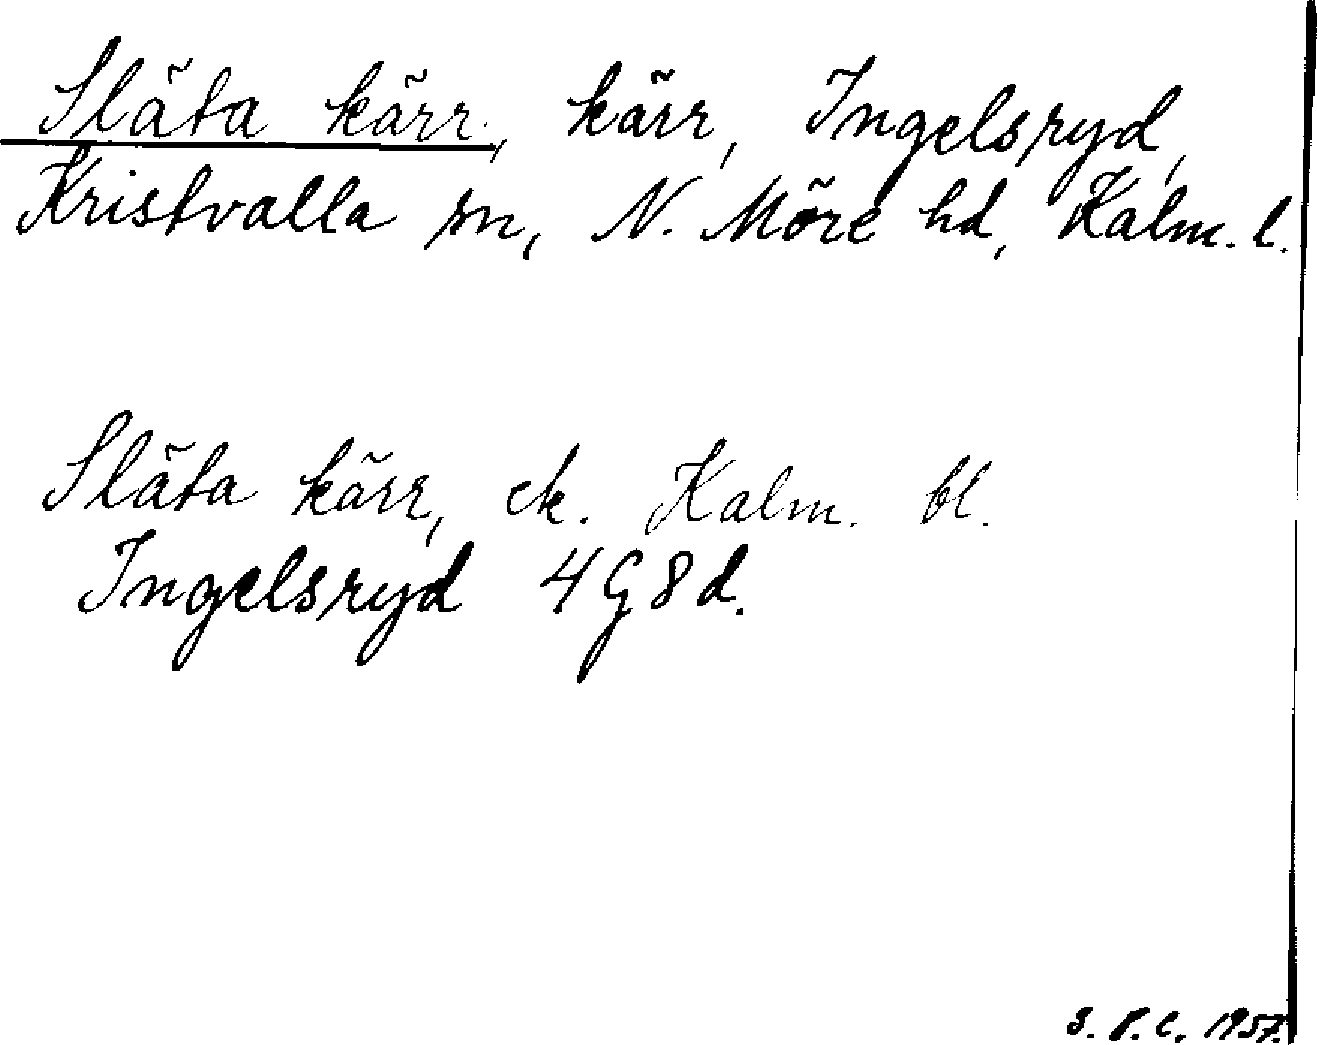 Släta kärr, kärr, Ingelsryd,
Kristvalla sn, N. Möre hd, Kalm. l.
Släta kärr, ek. Kalm. bl.
Ingelsryd 4G8d.
1957.